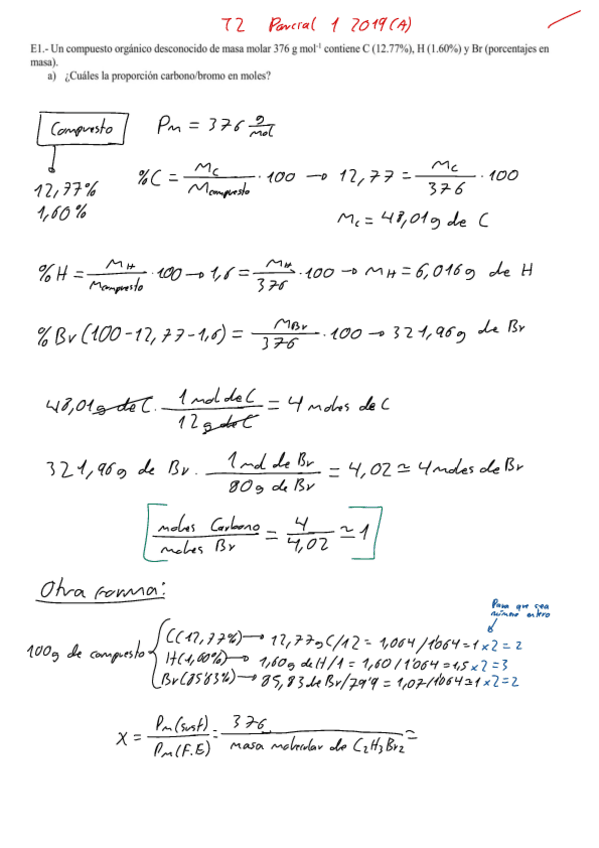 T2 Parcial 1 2019(A)
E1.- Un compuesto orgánico desconocido de masa molar 376 g mol⁻¹ contiene C (12.77%), H (1.60%) y Br (porcentajes en
masa).
a) ¿Cuáles la proporción carbono/bromo en moles?
Compuesto Pm = 376 g/mol
12,77%
1,60%
%C = Mc/Mcompuesto · 100 → 12,77 = Mc/376 · 100
Mc = 48,01g de C
%H = MH/Mcompuesto · 100 → 1,6 = MH/376 · 100 → MH = 6,016g de H
%Br (100-12,77-1,6) = MBr/376 · 100 → 321,96g de Br
48,01g de C · 1 mol de C/12g de C = 4 moles de C
321,96g de Br · 1 mol de Br/80g de Br = 4,02 ≃ 4 moles de Br
[moles Carbono/moles Br = 4/4,02 ≃ 1]
Otra forma:
Para que sea
número entero
100g de compuesto
C(12,77%) → 12,77gC/12 = 1,064/1'064 = 1 x2 = 2
H(1,60%) → 1,60g de H/1 = 1,60/1'064 = 1,5 x2 = 3
Br(85'83%) → 85,83 de Br/79'9 = 1,07/1'064 ≃ 1 x2 = 2
X = Pm(sust)/Pm(F.E) = 376/masa molecular de C₂H₃Br₂ =